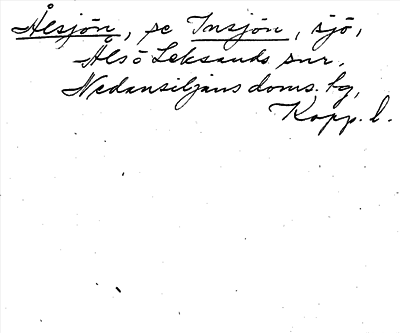 Ålsjön, se Insjön, sjö,
Åls o Leksands snr,
Nedansiljans doms. hg,
Kopp. l.